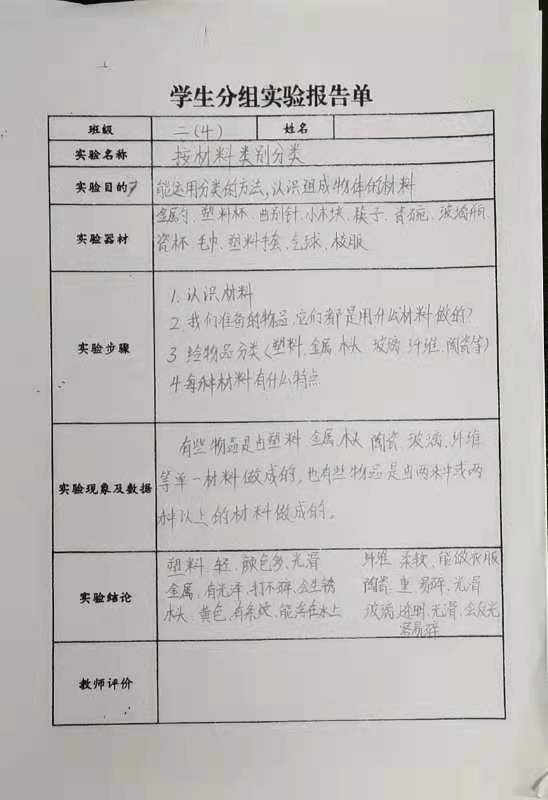 学生分组实验报告单
班级 二(4) 姓名
实验名称 按材料类别分类
实验目的 能运用分类的方法,认识组成物体的材料
金属勺、塑料杯、曲别针、小木块、筷子、瓷碗、玻璃瓶、
实验器材 瓷杯、毛巾、塑料手套、气球、校服
1.认识材料
2.我们准备的物品,它们都是用什么材料做的)
实验步骤 3.给物品分类(塑料、金属、木头、玻璃、纤维、陶瓷等)
4.每种材料有什么特点
有些物品是由塑料、金属、木头、陶瓷、玻璃、纤维
实验现象及数据 等单一材料做成的,也有些物品是由两种或两
种以上的材料做成的。
塑料、轻、颜色多、光滑 纤维 柔软、能做衣服
实验结论 金属、有光泽、打不碎、会生锈 陶瓷、重、易碎、光滑
木头、黄色、有条纹、能浮在水上 玻璃、透明、光滑、会反光
容易碎
教师评价